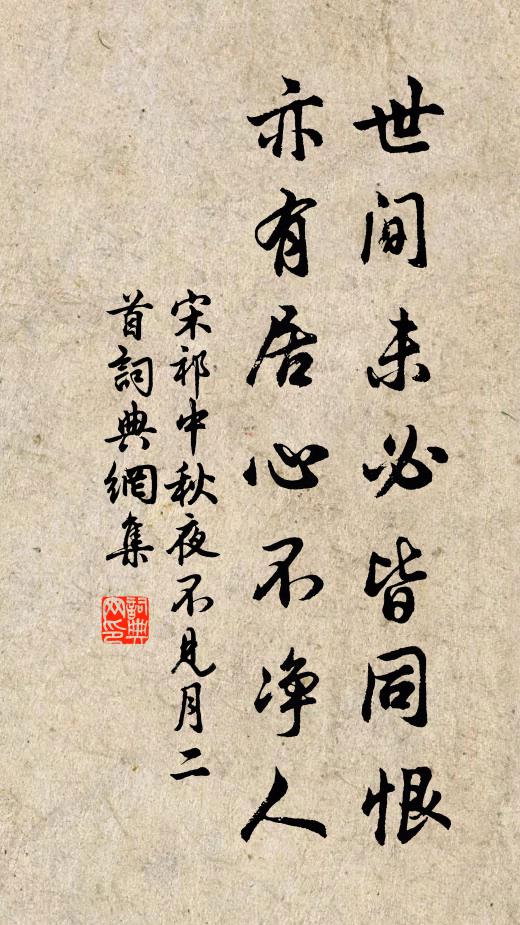 世间未必皆同恨
亦有居心不净人
宋祁中秋夜不见月二
首詞典網集
詞典
网印